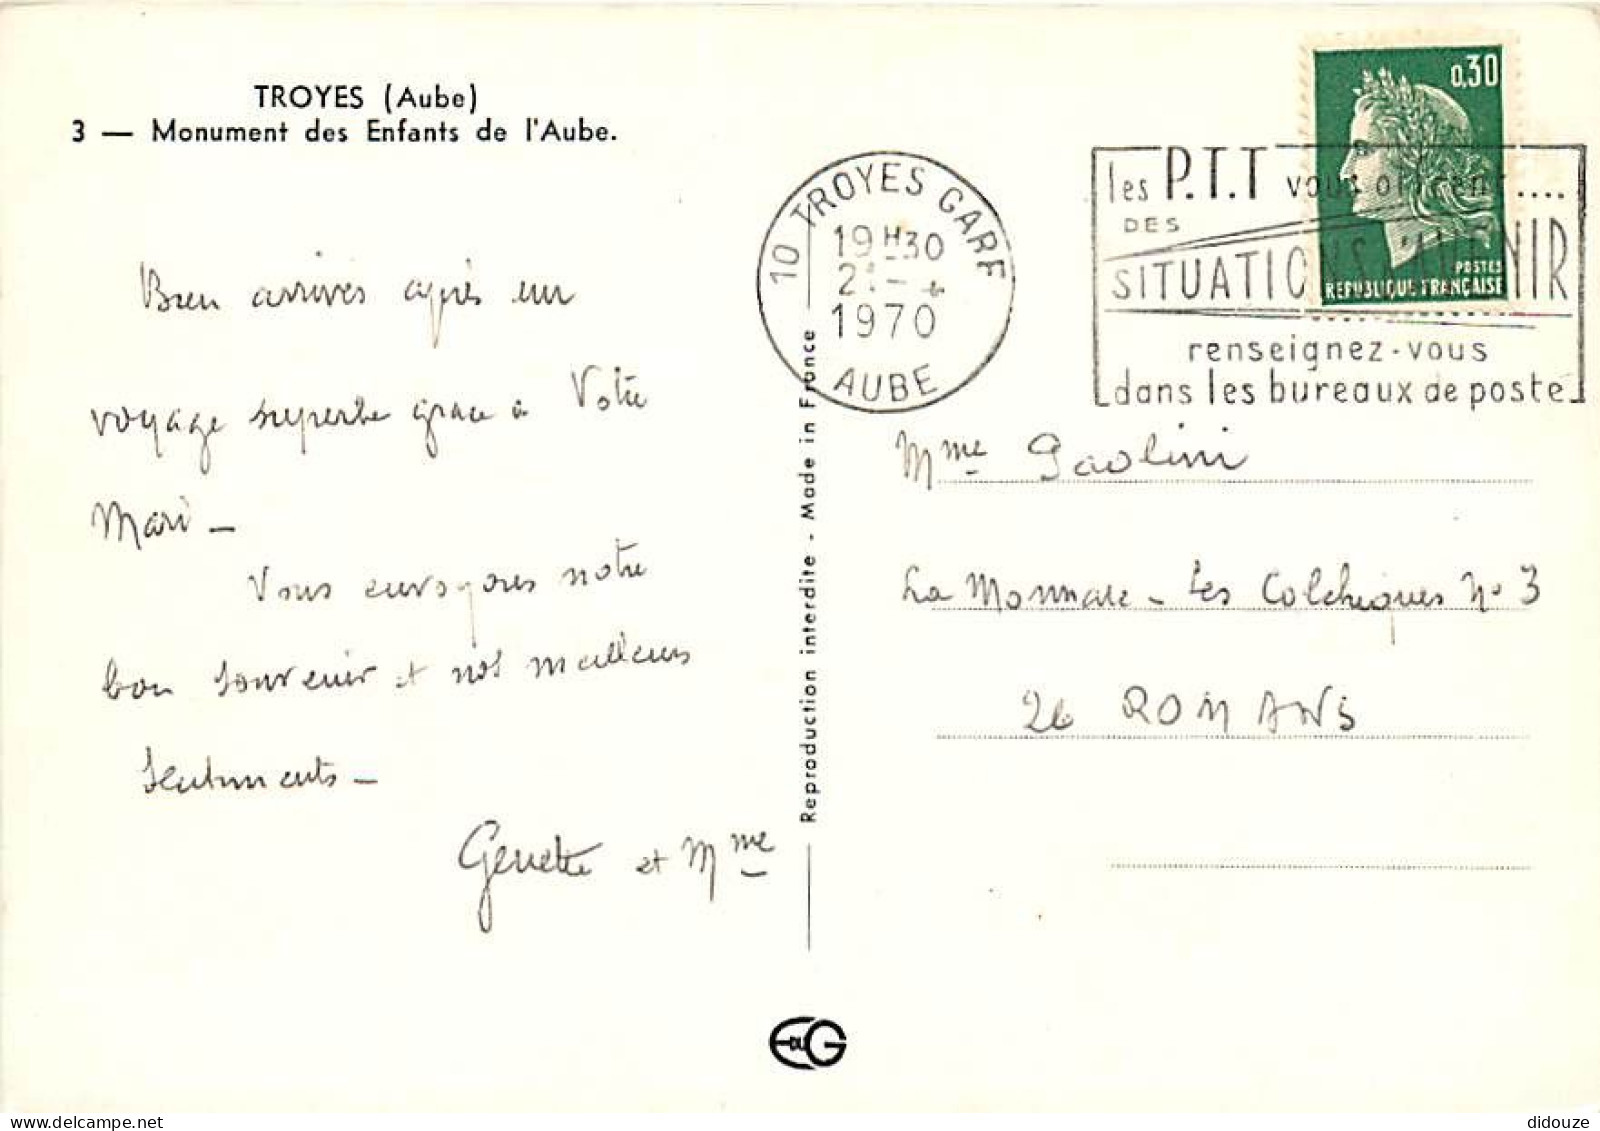 TROYES (Aube)
3 — Monument des Enfants de l'Aube.
Bien arrivés après un
voyage superbe grace à Votre
Mari –
Vous envoyons notre
bon souvenir et nos meilleurs
sentiments –
Genette et Mme
Reproduction interdite - Made in France
EDUG
10 TROYES GARE
19H30
1970
AUBE
les P.T.T vous offrent ....
DES
SITUATIONS D'AVENIR
renseignez-vous
dans les bureaux de poste
0,30
POSTES
REPUBLIQUE FRANÇAISE
Mme Paolini
La Monnaie - Les Colchiques No 3
26 ROMANS
didouze